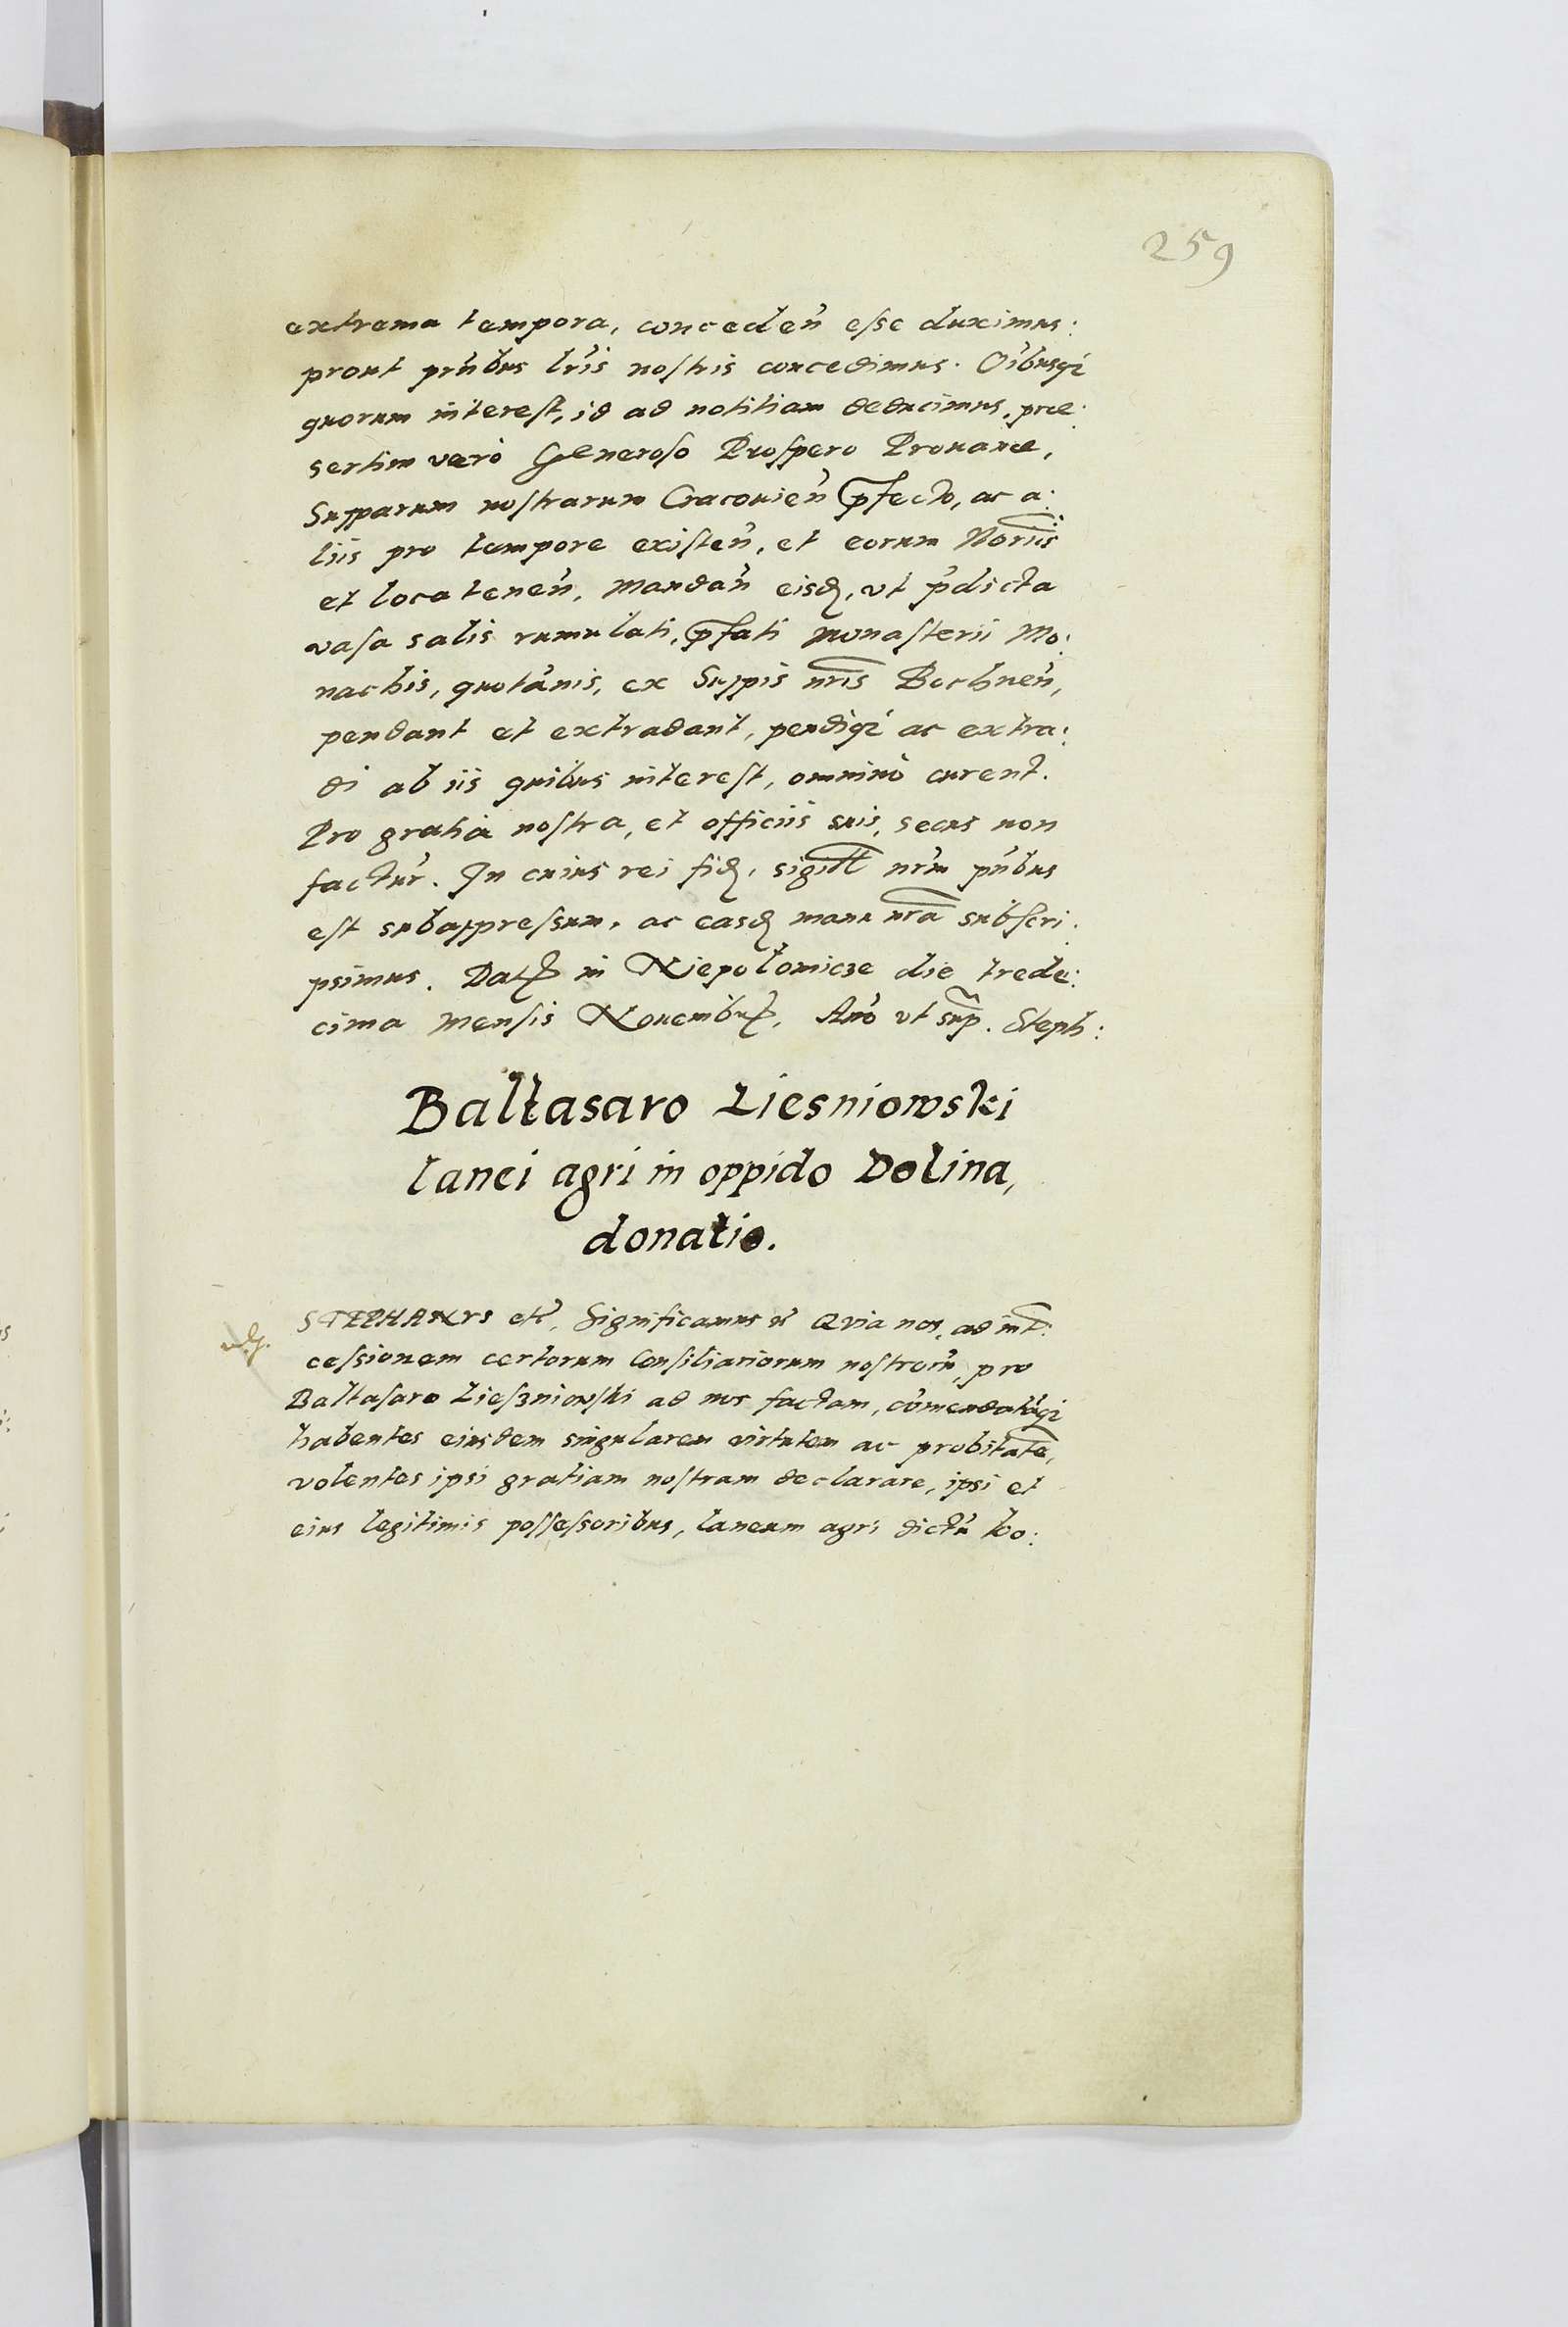 259
extrema tempora, conceden̄ esse duximus:
prout pr̄ntibus lr̄is nostris concedimus. Oībusq́
quorum interest, id ad notitiam deducimus, prae:
sertim verò Generoso Prospero Prouanae,
Supparum nostrarum Cracouien̄ p̄fecto, ac a:
liis pro tempore existen̄, et eorum Nor̄iis
et loca tenen̄, Mandan̄ eisd, vt p̄dicta
vasa salis rumulati, p̄fati monasterii Mo:
nachis, quotānis, ex Suppis nr̄is Bochnen̄,
pendant et extradant, pendiq́ ac extra:
di ab iis quibus interest, omninò curent.
Pro gratia nostra, et officiis suis, secus non
factur̄. In cuius rei fid, sigill nr̄m pn̄tibus
est subappressum, ac easd manu nr̄a subscri:
psimus. Dat in Niepolomicze die trede:
cima Mensis Nouembr, Ann̄o vt sup̄. Steph:
Baltasaro Liesniowski
lanei agri in oppido Dolina,
donatio.
STEPHANVS etc̄, Significamus etc̄ Quia nos, ad int̄:
cessionem certorum Consiliariorum nostrorū, pro
Baltasaro Lieszniowski ad nos factam, cōmendatāq́
habentes eiusdem singularem virtutem ac probitatē,
volentes ipsi gratiam nostram declarare, ipsi et
eius legitimis possessoribus, laneum agri dictū Wo: